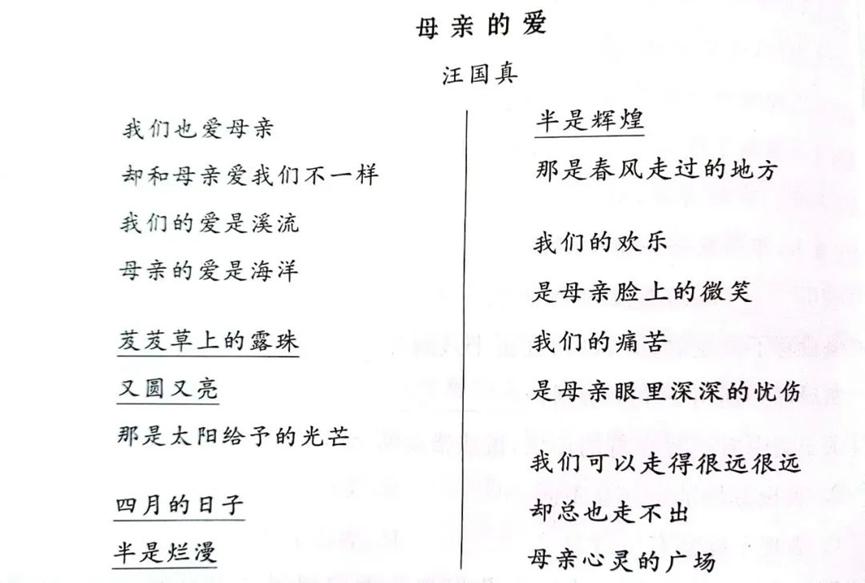 母亲的爱
汪国真
我们也爱母亲
却和母亲爱我们不一样
我们的爱是溪流
母亲的爱是海洋
芨芨草上的露珠
又圆又亮
那是太阳给予的光芒
四月的日子
半是烂漫
半是辉煌
那是春风走过的地方
我们的欢乐
是母亲脸上的微笑
我们的痛苦
是母亲眼里深深的忧伤
我们可以走得很远很远
却总也走不出
母亲心灵的广场